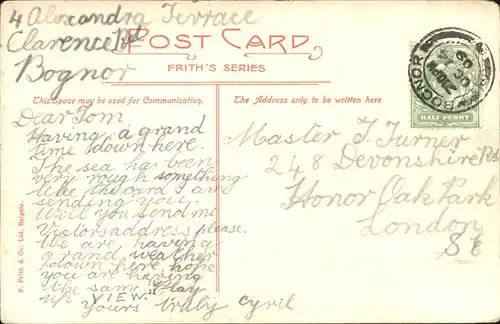 4 Alexandra Terrace
Clarence Rd
Bognor
POST CARD
FRITH'S SERIES
This Space may be used for Communication.
The Address only to be written here
BOGNOR
HALF PENNY
Dear Tom
Having a grand
time down here.
The sea has been
very rough something
like the card I am
sending you.
Will you send me
Victors address please.
We are having
grand weather
down here hope
you are having
the same. Play
up "VIEW."
Yours truly Cyril
Master T. Turner
248 Devonshire Rd
Honor Oak Park
London
SE
F. Frith & Co. Ltd. Reigate.